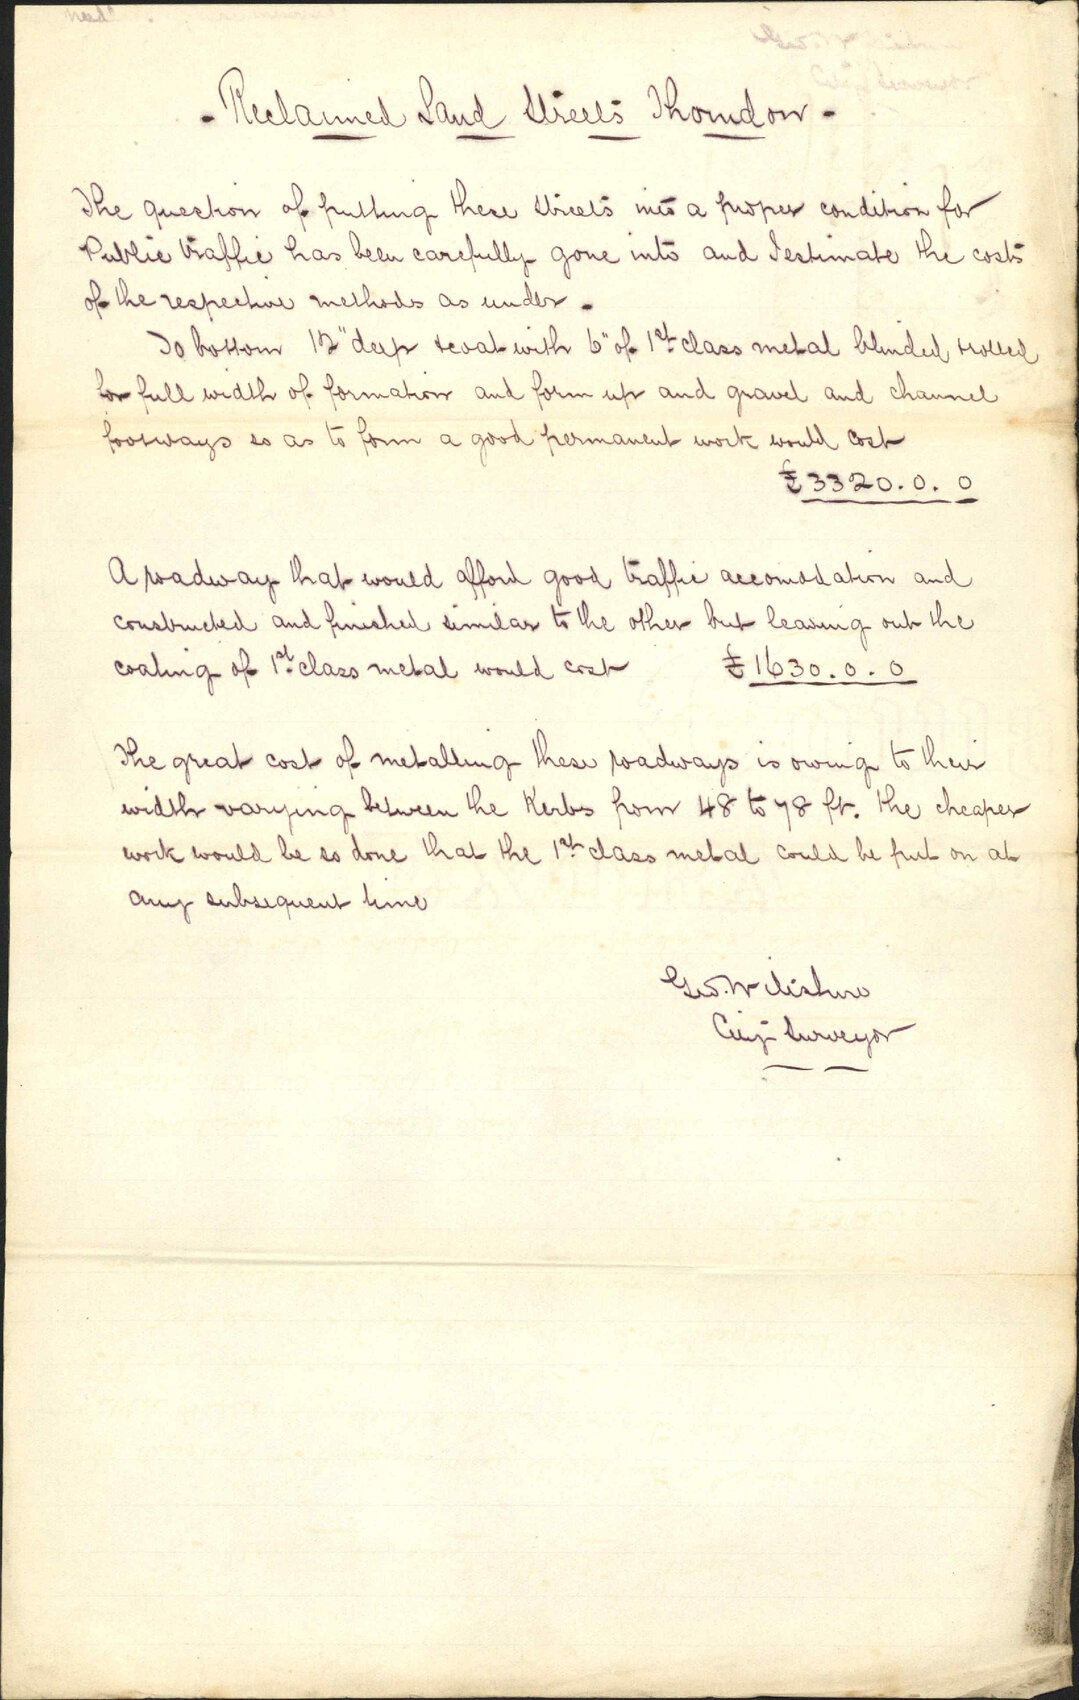 - Reclaimed Land Streets Thorndon -
The question of putting these streets into a proper condition for
Public traffic has been carefully gone into and I estimate the costs
of the respective methods as under -
To bottom 12" deep & coat with 6" of 1st class metal blinded & rolled
for full width of formation and form up and gravel and channel
footways so as to form a good permanent work would cost
£3320.0.0
A roadway that would afford good traffic accomodation and
constructed and finished similar to the other but leaving out the
coating of 1st class metal would cost £1630.0.0
The great cost of metalling these roadways is owing to their
width varying between the Kerbs from 48 to 78 ft. The cheaper
work would be so done that the 1st class metal could be put on at
any subsequent time
Geo. Wiltshire
City Surveyor